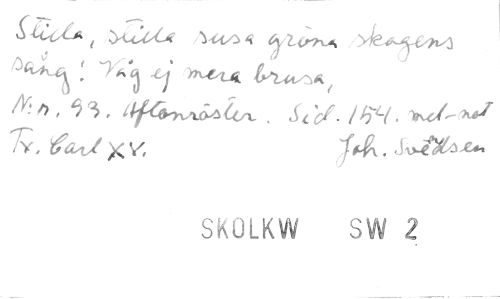 Stilla, stilla susa gröna skogens
sång! Våg ej mera brusa,
N:r. 93. Aftonröster. Sid. 154. mel-not
Tx. Carl XV. Joh. Svendsen
SKOLKW SW 2